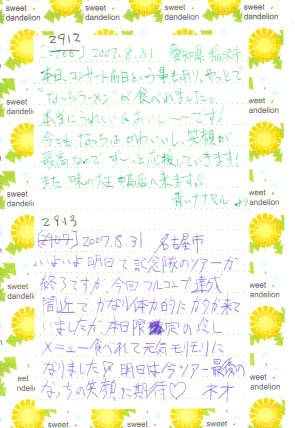 sweet dandelion
2912
2007.8.31 愛知県稲沢市
本日、コンサート前日という事もあり、やっとで
"なっちラーメン"が食べれました。
本当にうれしい&おいしーです!
今でもなっちはかわいいし、笑顔が
最高なのでずーっと応援していきます!
また味の大王 幅店へ来ます!!
青いナナマルより
2913
2007.8.31 名古屋市
いよいよ明日で記念隊のツアーが
終了ですが、今回フルコンプ達成
間近で、かなり体力的にガタが来て
いましたが、本日限定の
メニュー食べれて元気モリモリに
なりました 明日は今ツアー最後の
なっちの笑顔に期待♡ ネオ
sweet dandelion